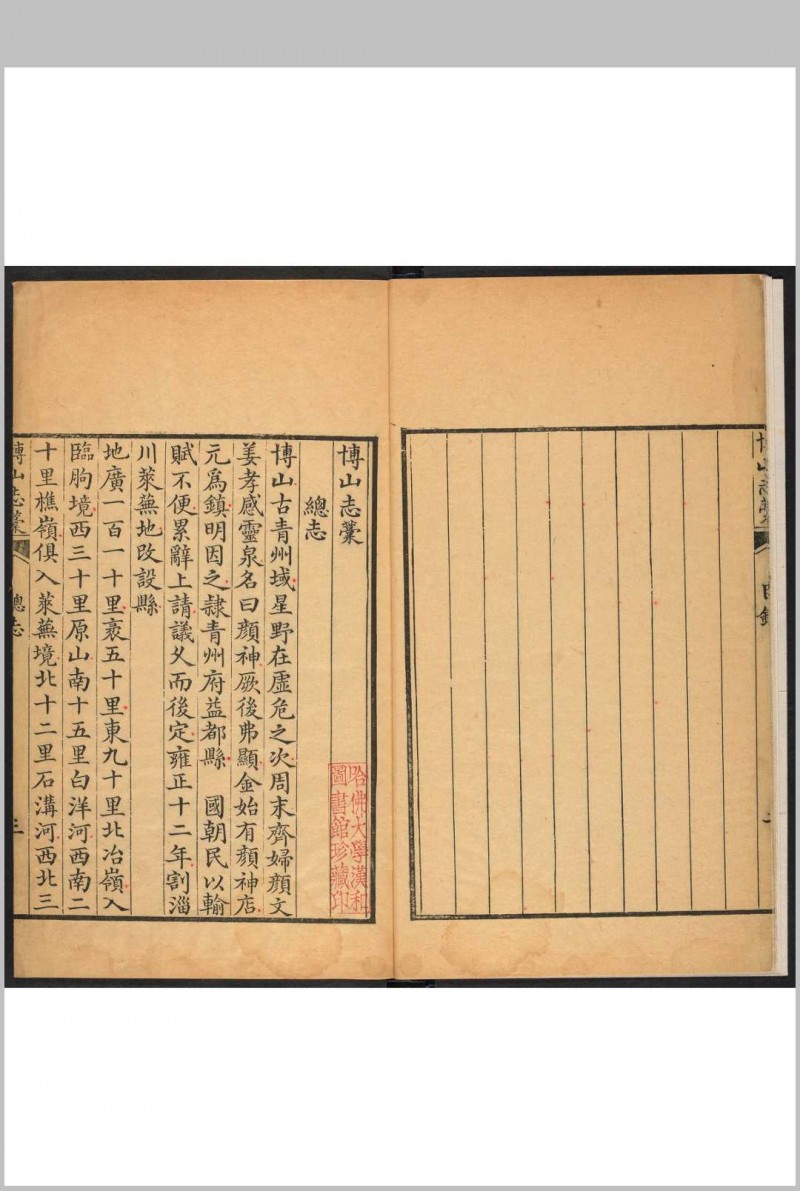 博山志藁
目錄
博山志藁
總志
博山古青州域星野在虛危之次周末齊婦顏文
姜孝感靈泉名曰顏神厥後弗顯金始有顏神店
元爲鎮明因之隸青州府益都縣 國朝民以輸
賦不便累辭上請議乆而後定雍正十二年割淄
川萊蕪地改設縣
地廣一百一十里袤五十里東九十里北冶嶺入
臨朐境西三十里原山南十五里白洋河西南二
十里樵嶺俱入萊蕪境北十二里石溝河西北三
博山志藁
總志
三
哈佛大學漢和
圖書館珍藏印